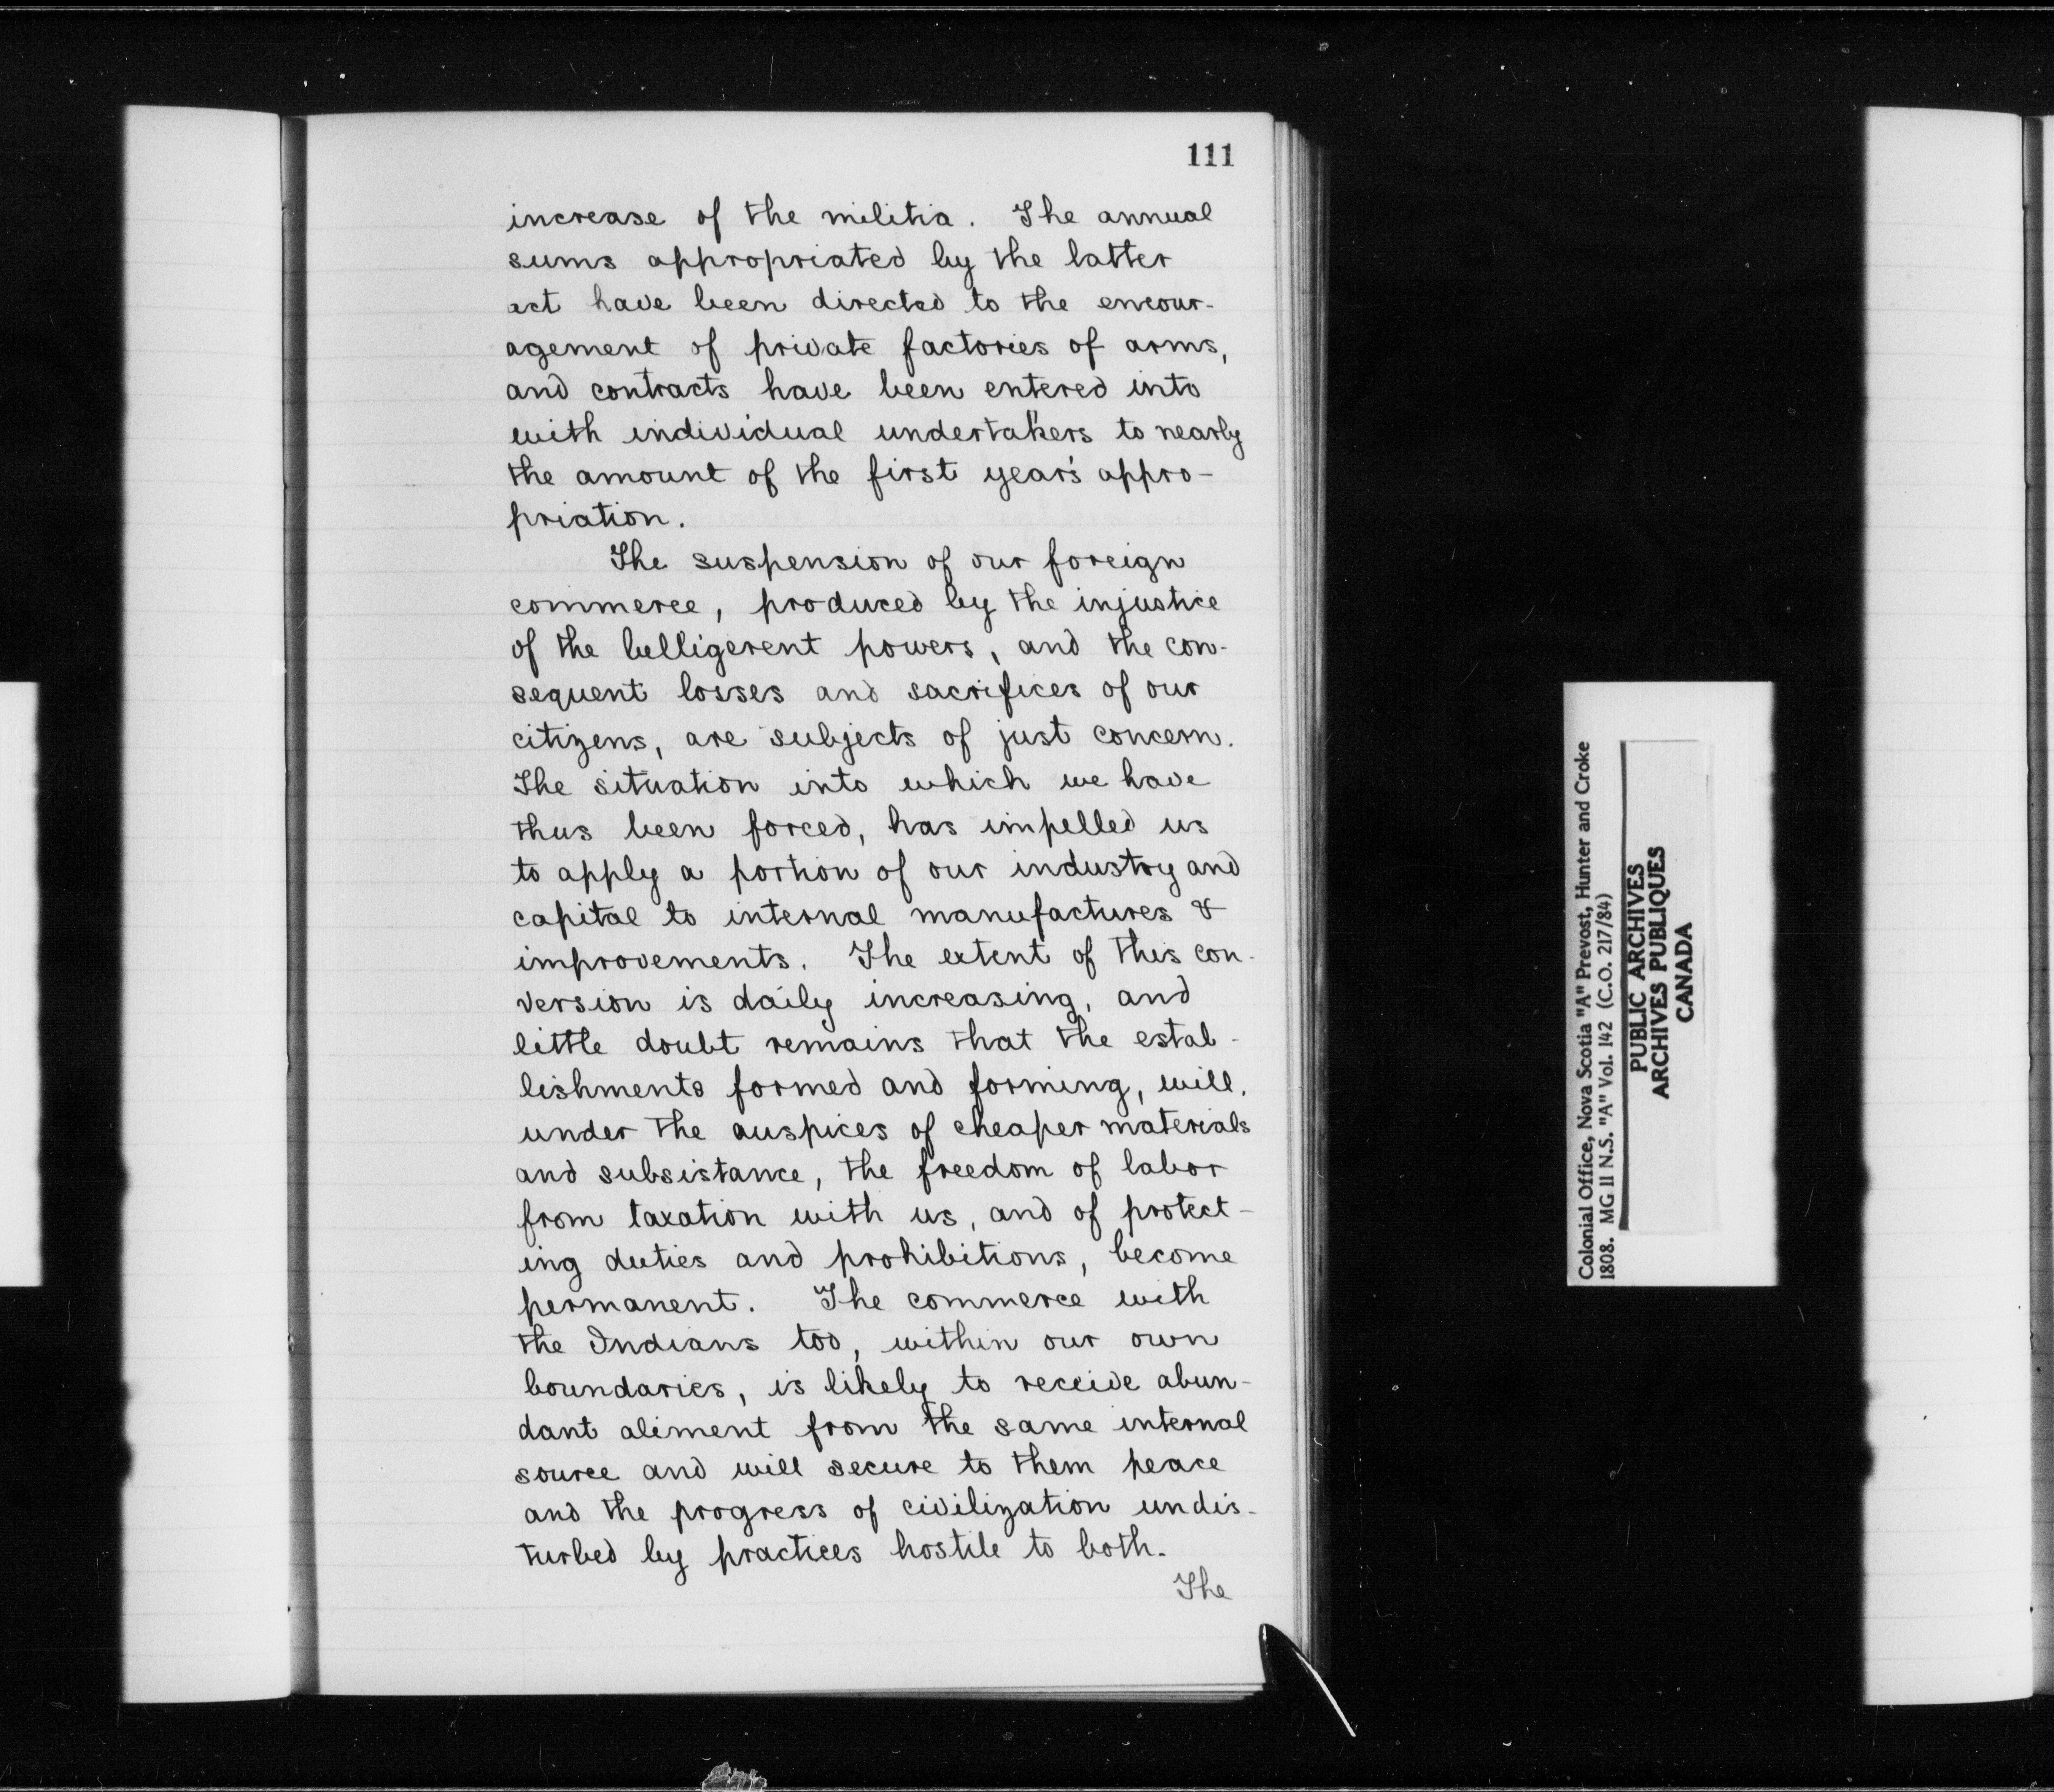 111
increase of the militia. The annual
sums appropriated by the latter
act have been directed to the encour-
agement of private factories of arms,
and contracts have been entered into
with individual undertakers to nearly
the amount of the first year's appro-
priation.
The suspension of our foreign
commerce, produced by the injustice
of the belligerent powers, and the con-
sequent losses and sacrifices of our
citizens, are subjects of just concern.
The situation into which we have
thus been forced, has impelled us
to apply a portion of our industry and
capital to internal manufactures &
improvements. The extent of this con-
version is daily increasing, and
little doubt remains that the estab-
lishments formed and forming, will,
under the auspices of cheaper materials
and subsistance, the freedom of labor
from taxation with us, and of protect-
ing duties and prohibitions, become
permanent. The commerce with
the Indians too, within our own
boundaries, is likely to receive abun-
dant aliment from the same internal
source and will secure to them peace
and the progress of civilization undis-
turbed by practices hostile to both.
The
Colonial Office, Nova Scotia "A" Prevost, Hunter and Croke
1808. MG 11 N.S. "A" Vol. 142 (C.O. 217/84)
PUBLIC ARCHIVES
ARCHIVES PUBLIQUES
CANADA